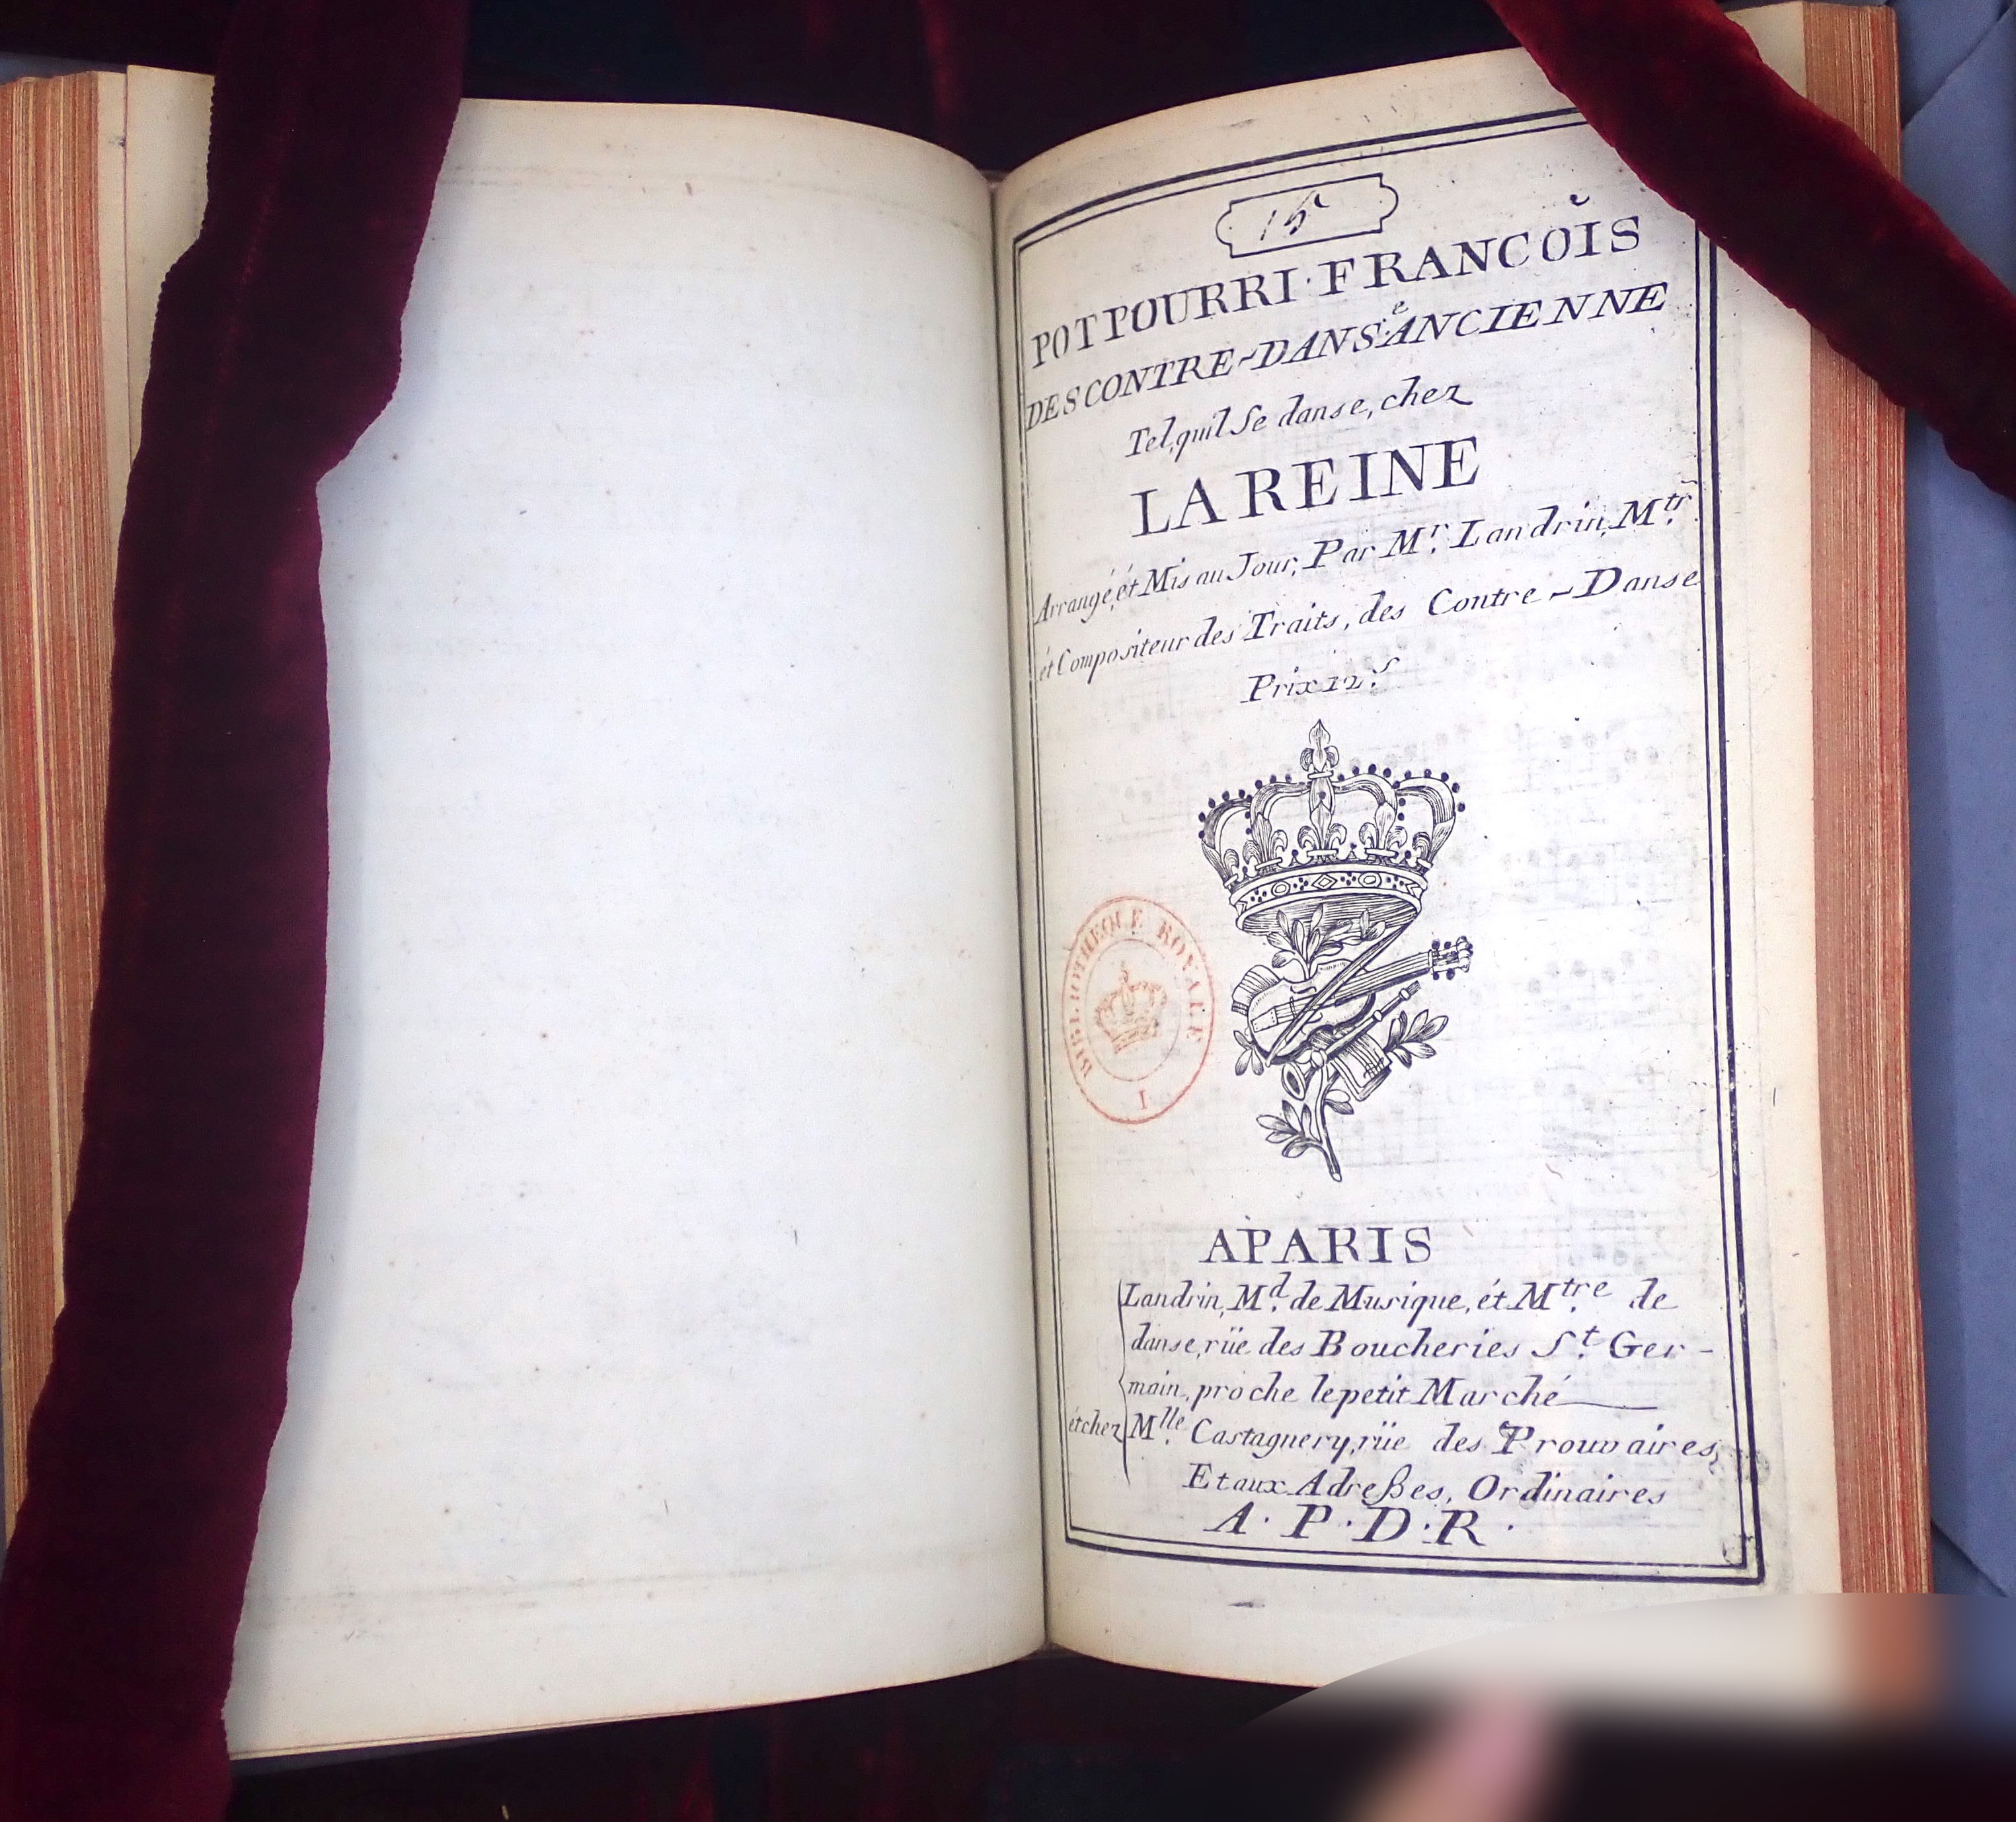 15
POTPOURRI·FRANCOIS
DES CONTRE-DANSe ANCIENNE
Tel, quil Se danse, chez
LA REINE
Arrangé, ét Mis au Jour, Par Mr. Landrin, Mtr.
ét Compositeur des Traits, des Contre-Danse
Prix 12.s
BIBLIOTHEQUE ROYALE
I
A PARIS
Landrin, Md. de Musique, ét Mtre. de
danse, rüe des Boucheries St. Ger-
main, proche le petit Marché
ét chez Mlle. Castagnery, rüe des Prouvaires,
Et aux Adreßes, Ordinaires
A·P·D·R·